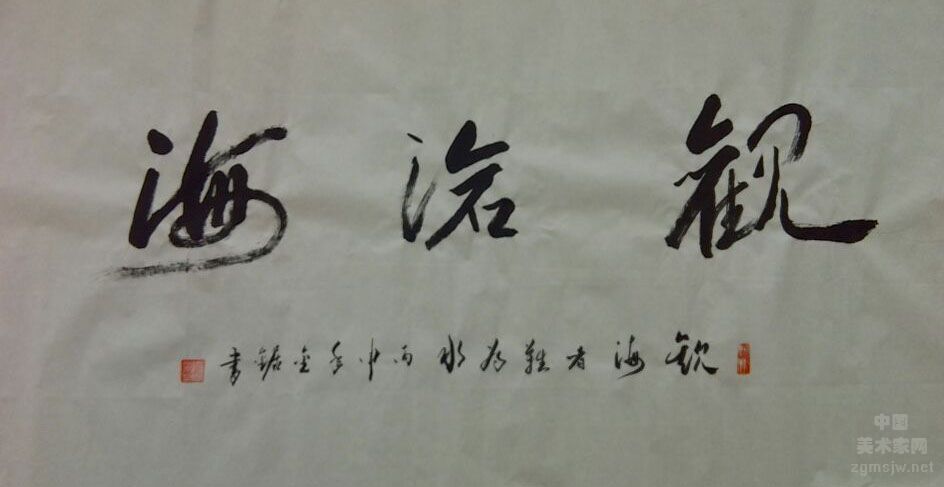 觀滄海
觀海者難為水丙申年金鋸書
中国
美术家网
zgmsjw.net